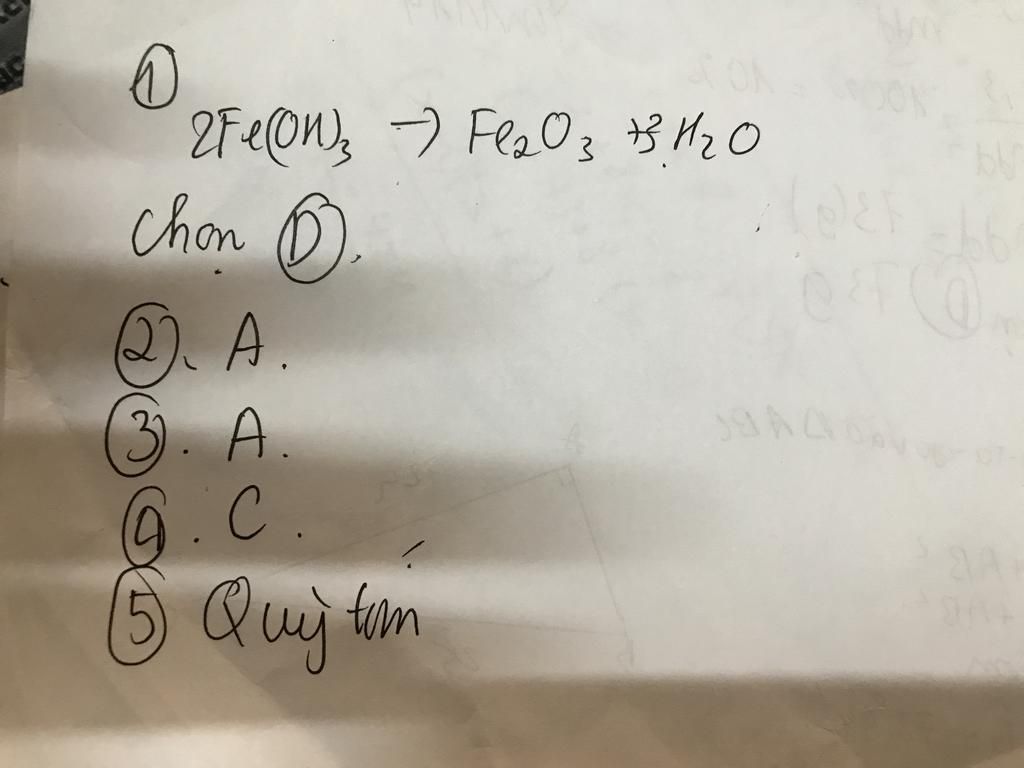 ①
2Fe(OH)₃ → Fe₂O₃ + 3H₂O
Chọn Ⓓ.
②. A.
③. A.
④. C.
⑤ Quỳ tím